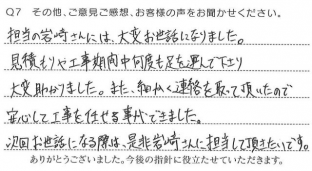 Q7 その他、ご意見ご感想、お客様の声をお聞かせください。
担当の岩崎さんには、大変お世話になりました。
見積もりや工事期間中何度も足を運んで下り
大変助かりました。また、細かく連絡を取って頂いたので
安心して工事を任せる事ができました。
次回お世話になる際は、是非岩崎さんに担当して頂きたいです。
ありがとうございました。今後の指針に役立たせていただきます。